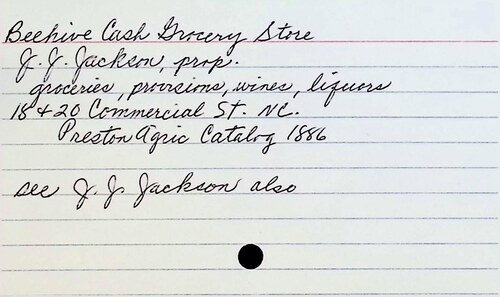 Beehive Cash Grocery Store
J. J. Jackson, prop.
groceries, provisions, wines, liquors
18 & 20 Commercial St. NC.
Preston Agric Catalog 1886
see J. J. Jackson also